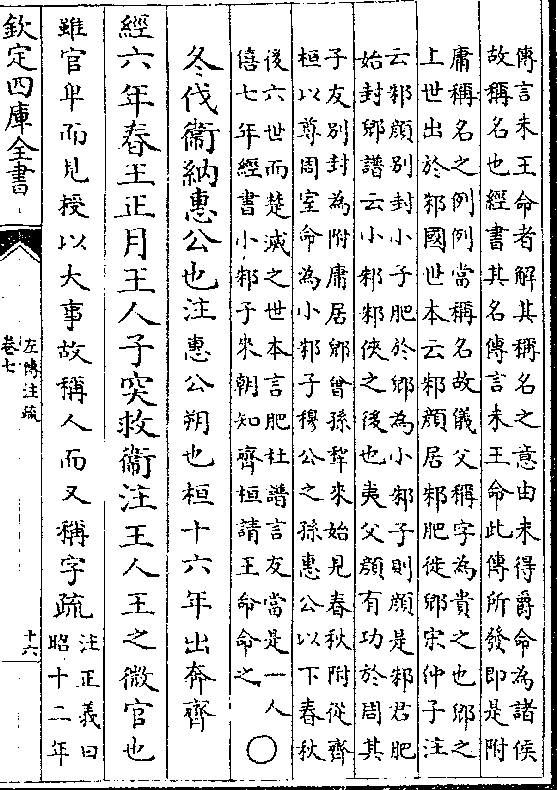 傳言未王命者解其稱名之意由未得爵命為諸侯
故稱名也經書其名傳言未王命此傳所發即是附
庸稱名之例例當稱名故儀父稱字為貴之也郳之
上世出於邾國世本云邾顔居邾肥徙郳宋仲子注
云邾顔別封小子肥於郳為小邾子則顔是邾君肥
始封郳譜云小邾邾俠之後也夷父顔有功於周其
子友別封為附庸居郳曾孫犂來始見春秋附從齊
桓以尊周室命為小邾子穆公之孫惠公以下春秋
後六世而楚滅之世本言肥杜譜言友當是一人
僖七年經書小邾子來朝知齊桓請王命命之 ○
冬伐衛納惠公也注惠公朔也桓十六年出奔齊
經六年春王正月王人子突救衛注王人王之微官也
雖官卑而見授以大事故稱人而又稱字疏
注正義曰
昭十二年
欽定四庫全書
左傳注疏
卷七
十六